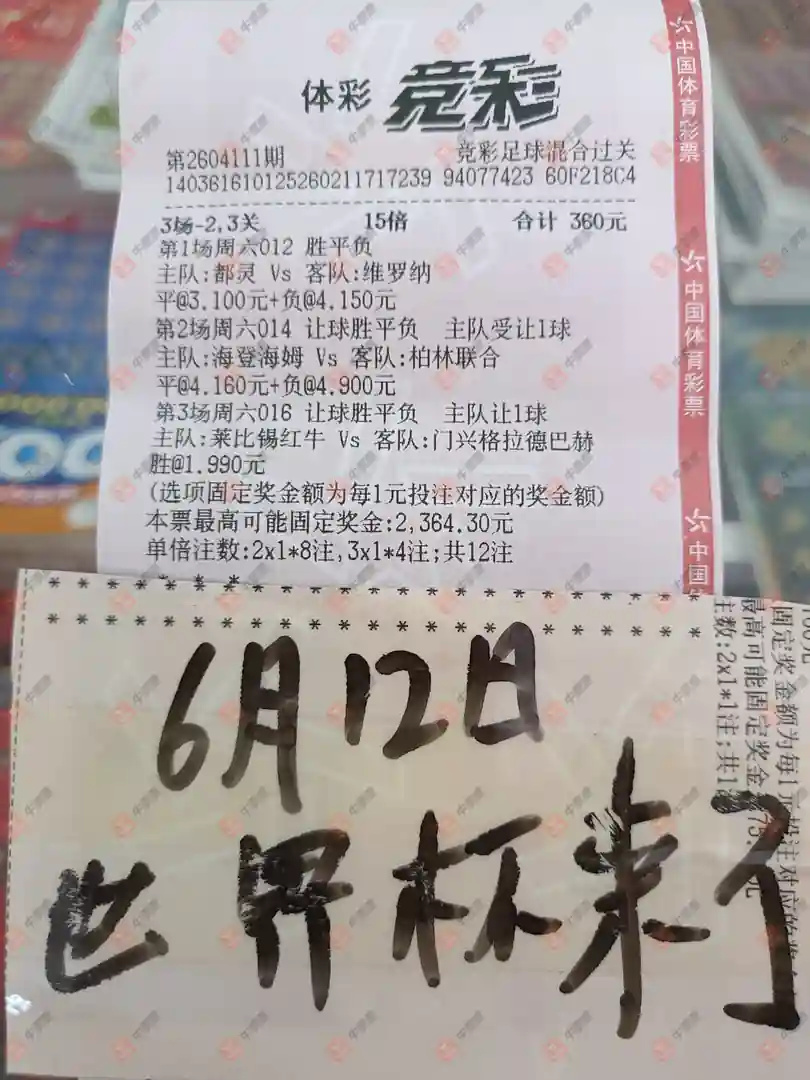 体彩 竞彩
第2604111期 竞彩足球混合过关
140361610125260211717239 94077423 60F218C4
3场-2,3关 15倍 合计 360元
第1场周六012 胜平负
主队:都灵 Vs 客队:维罗纳
平@3.100元+负@4.150元
第2场周六014 让球胜平负 主队受让1球
主队:海登海姆 Vs 客队:柏林联合
平@4.160元+负@4.900元
第3场周六016 让球胜平负 主队让1球
主队:莱比锡红牛 Vs 客队:门兴格拉德巴赫
胜@1.990元
(选项固定奖金额为每1元投注对应的奖金额)
本票最高可能固定奖金:2,364.30元
单倍注数:2x1*8注,3x1*4注;共12注
中国体育彩票
中国体育彩票
中国体
6月12日
世界杯来了
固定奖金额为每1元投注对应的奖金
最高可能固定奖金
主数:2x1*1注;共1